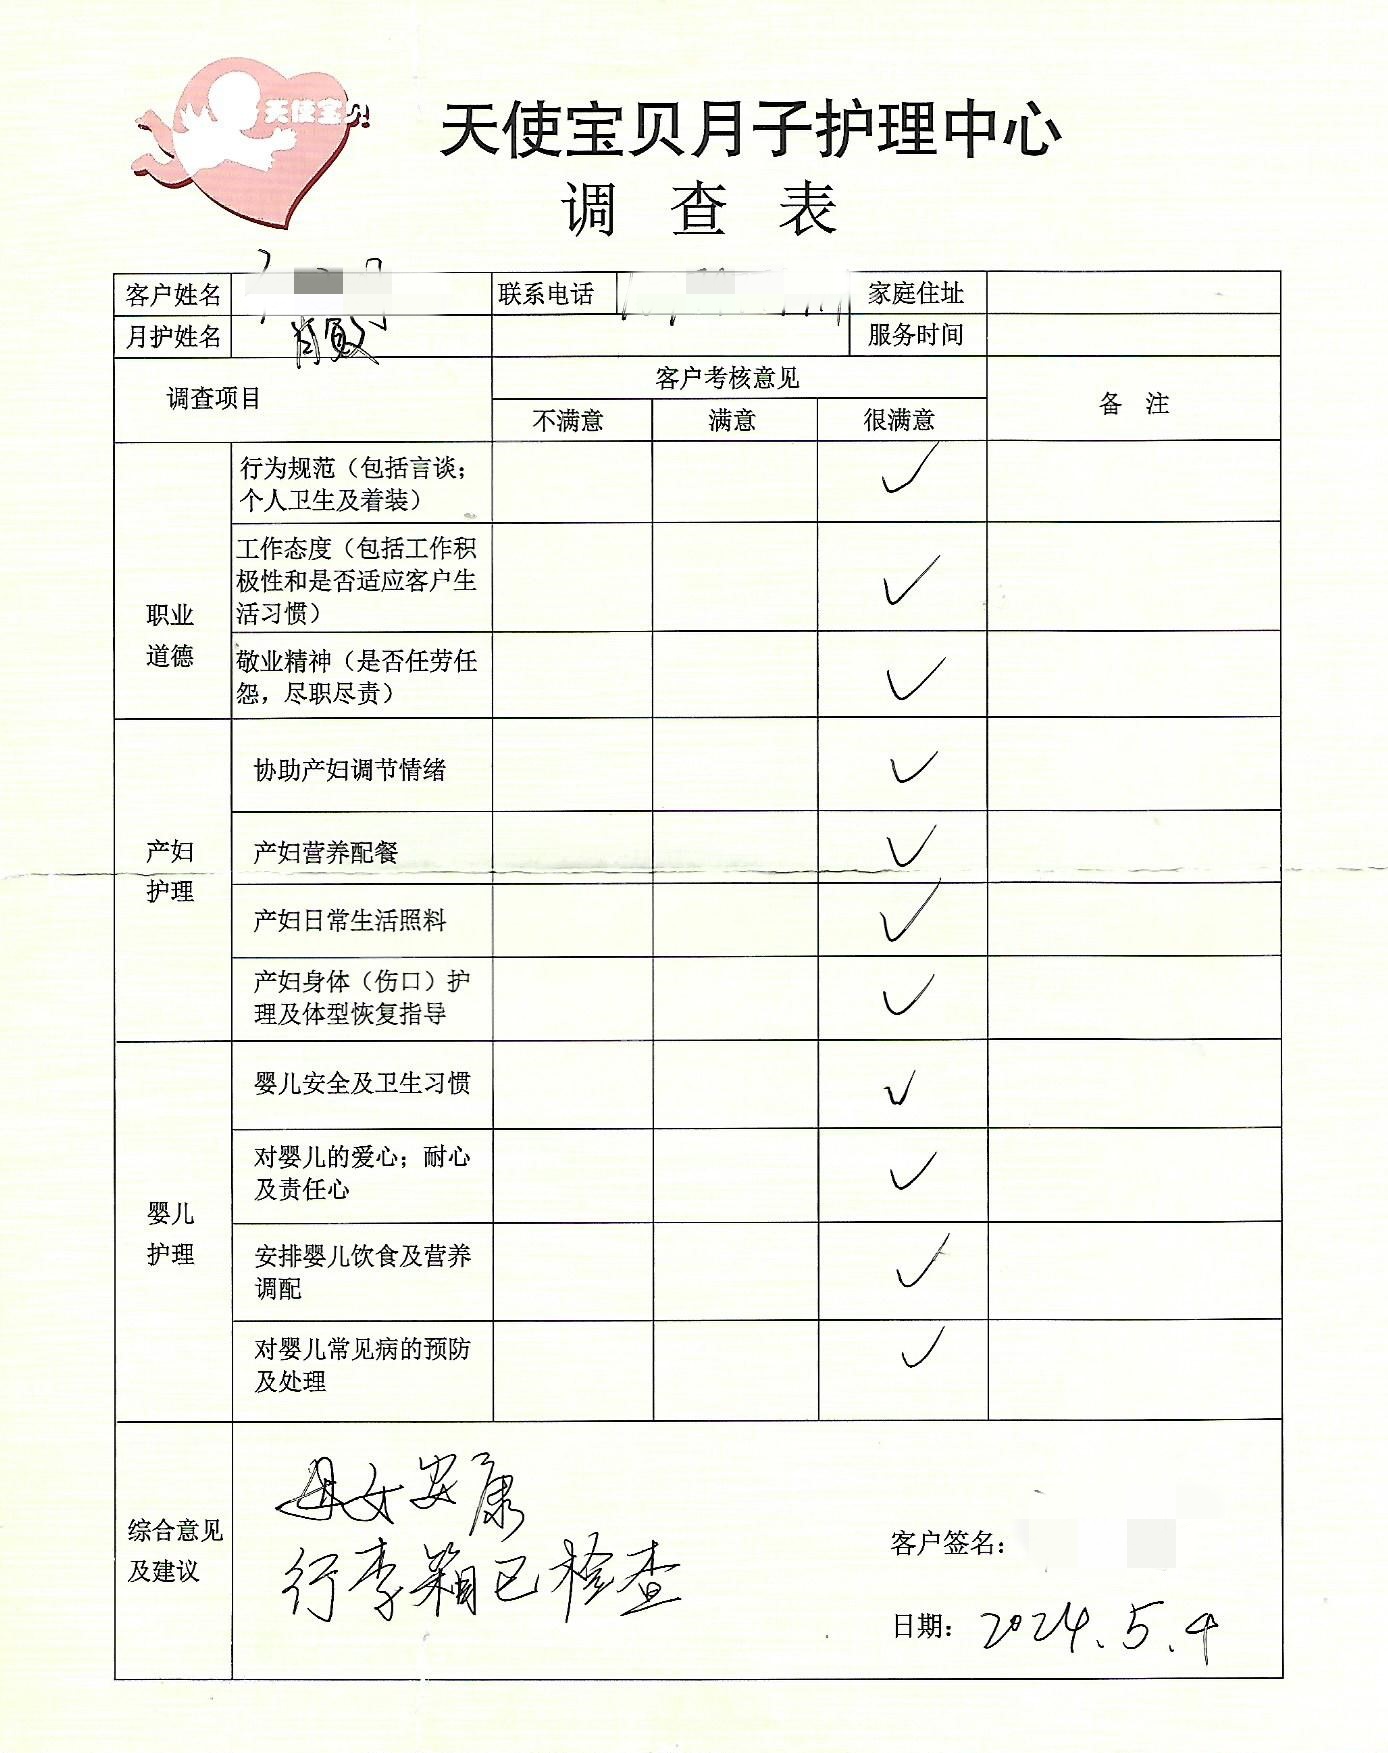 天使宝贝
天使宝贝月子护理中心
调 查 表
客户姓名 联系电话 家庭住址
月护姓名 服务时间
调查项目 客户考核意见 备 注
不满意 满意 很满意
职业
道德
行为规范（包括言谈；
个人卫生及着装） ✓
工作态度（包括工作积
极性和是否适应客户生
活习惯） ✓
敬业精神（是否任劳任
怨，尽职尽责） ✓
产妇
护理
协助产妇调节情绪 ✓
产妇营养配餐 ✓
产妇日常生活照料 ✓
产妇身体（伤口）护
理及体型恢复指导 ✓
婴儿
护理
婴儿安全及卫生习惯 ✓
对婴儿的爱心；耐心
及责任心 ✓
安排婴儿饮食及营养
调配 ✓
对婴儿常见病的预防
及处理 ✓
综合意见
及建议
母女安康
行李箱已检查
客户签名：
日期：2024.5.4